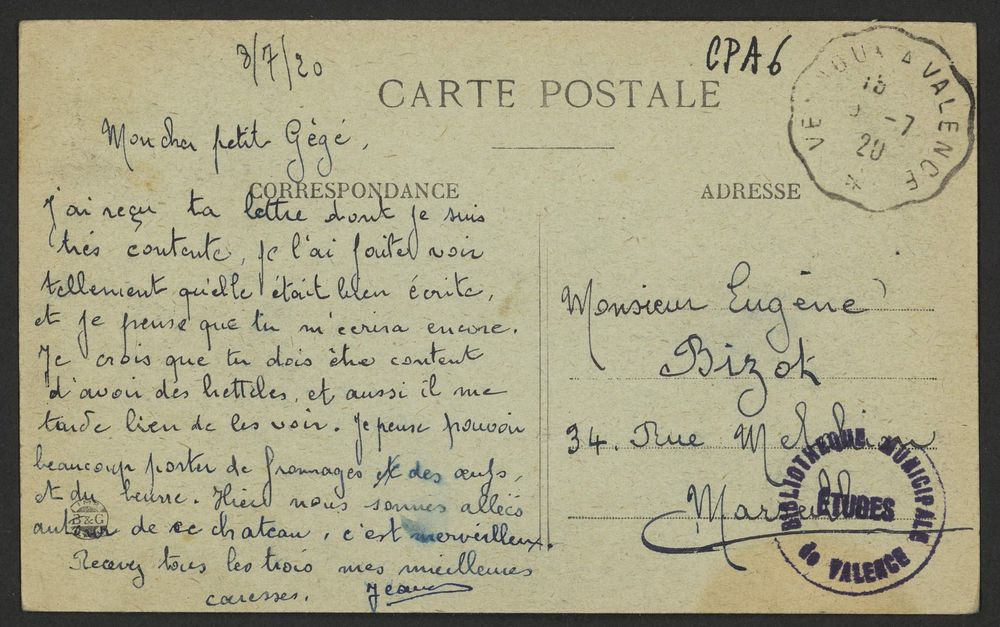 8/7/20
CPA 6
CARTE POSTALE
A VALENCE
-7
20
Mon cher petit Gégé,
CORRESPONDANCE
ADRESSE
J'ai reçu ta lettre dont je suis
très contente, je l'ai faite voir
tellement qu'elle était bien écrite,
et je pense que tu m'ecrira encore.
Je crois que tu dois être content
d'avoir des
et aussi il me
tarde bien de les voir. Je pense pouvoir
beaucoup porter de fromages et des œufs,
et du beurre. Hier nous sommes allées
autour de ce chateau, c'est merveilleux.
Recevez tous les trois mes meilleures
caresses. Jeanne
B&G
Monsieur Eugène
Bizot
34. Rue
Marseille
BIBLIOTHEQUE MUNICIPALE
ETUDES
de VALENCE